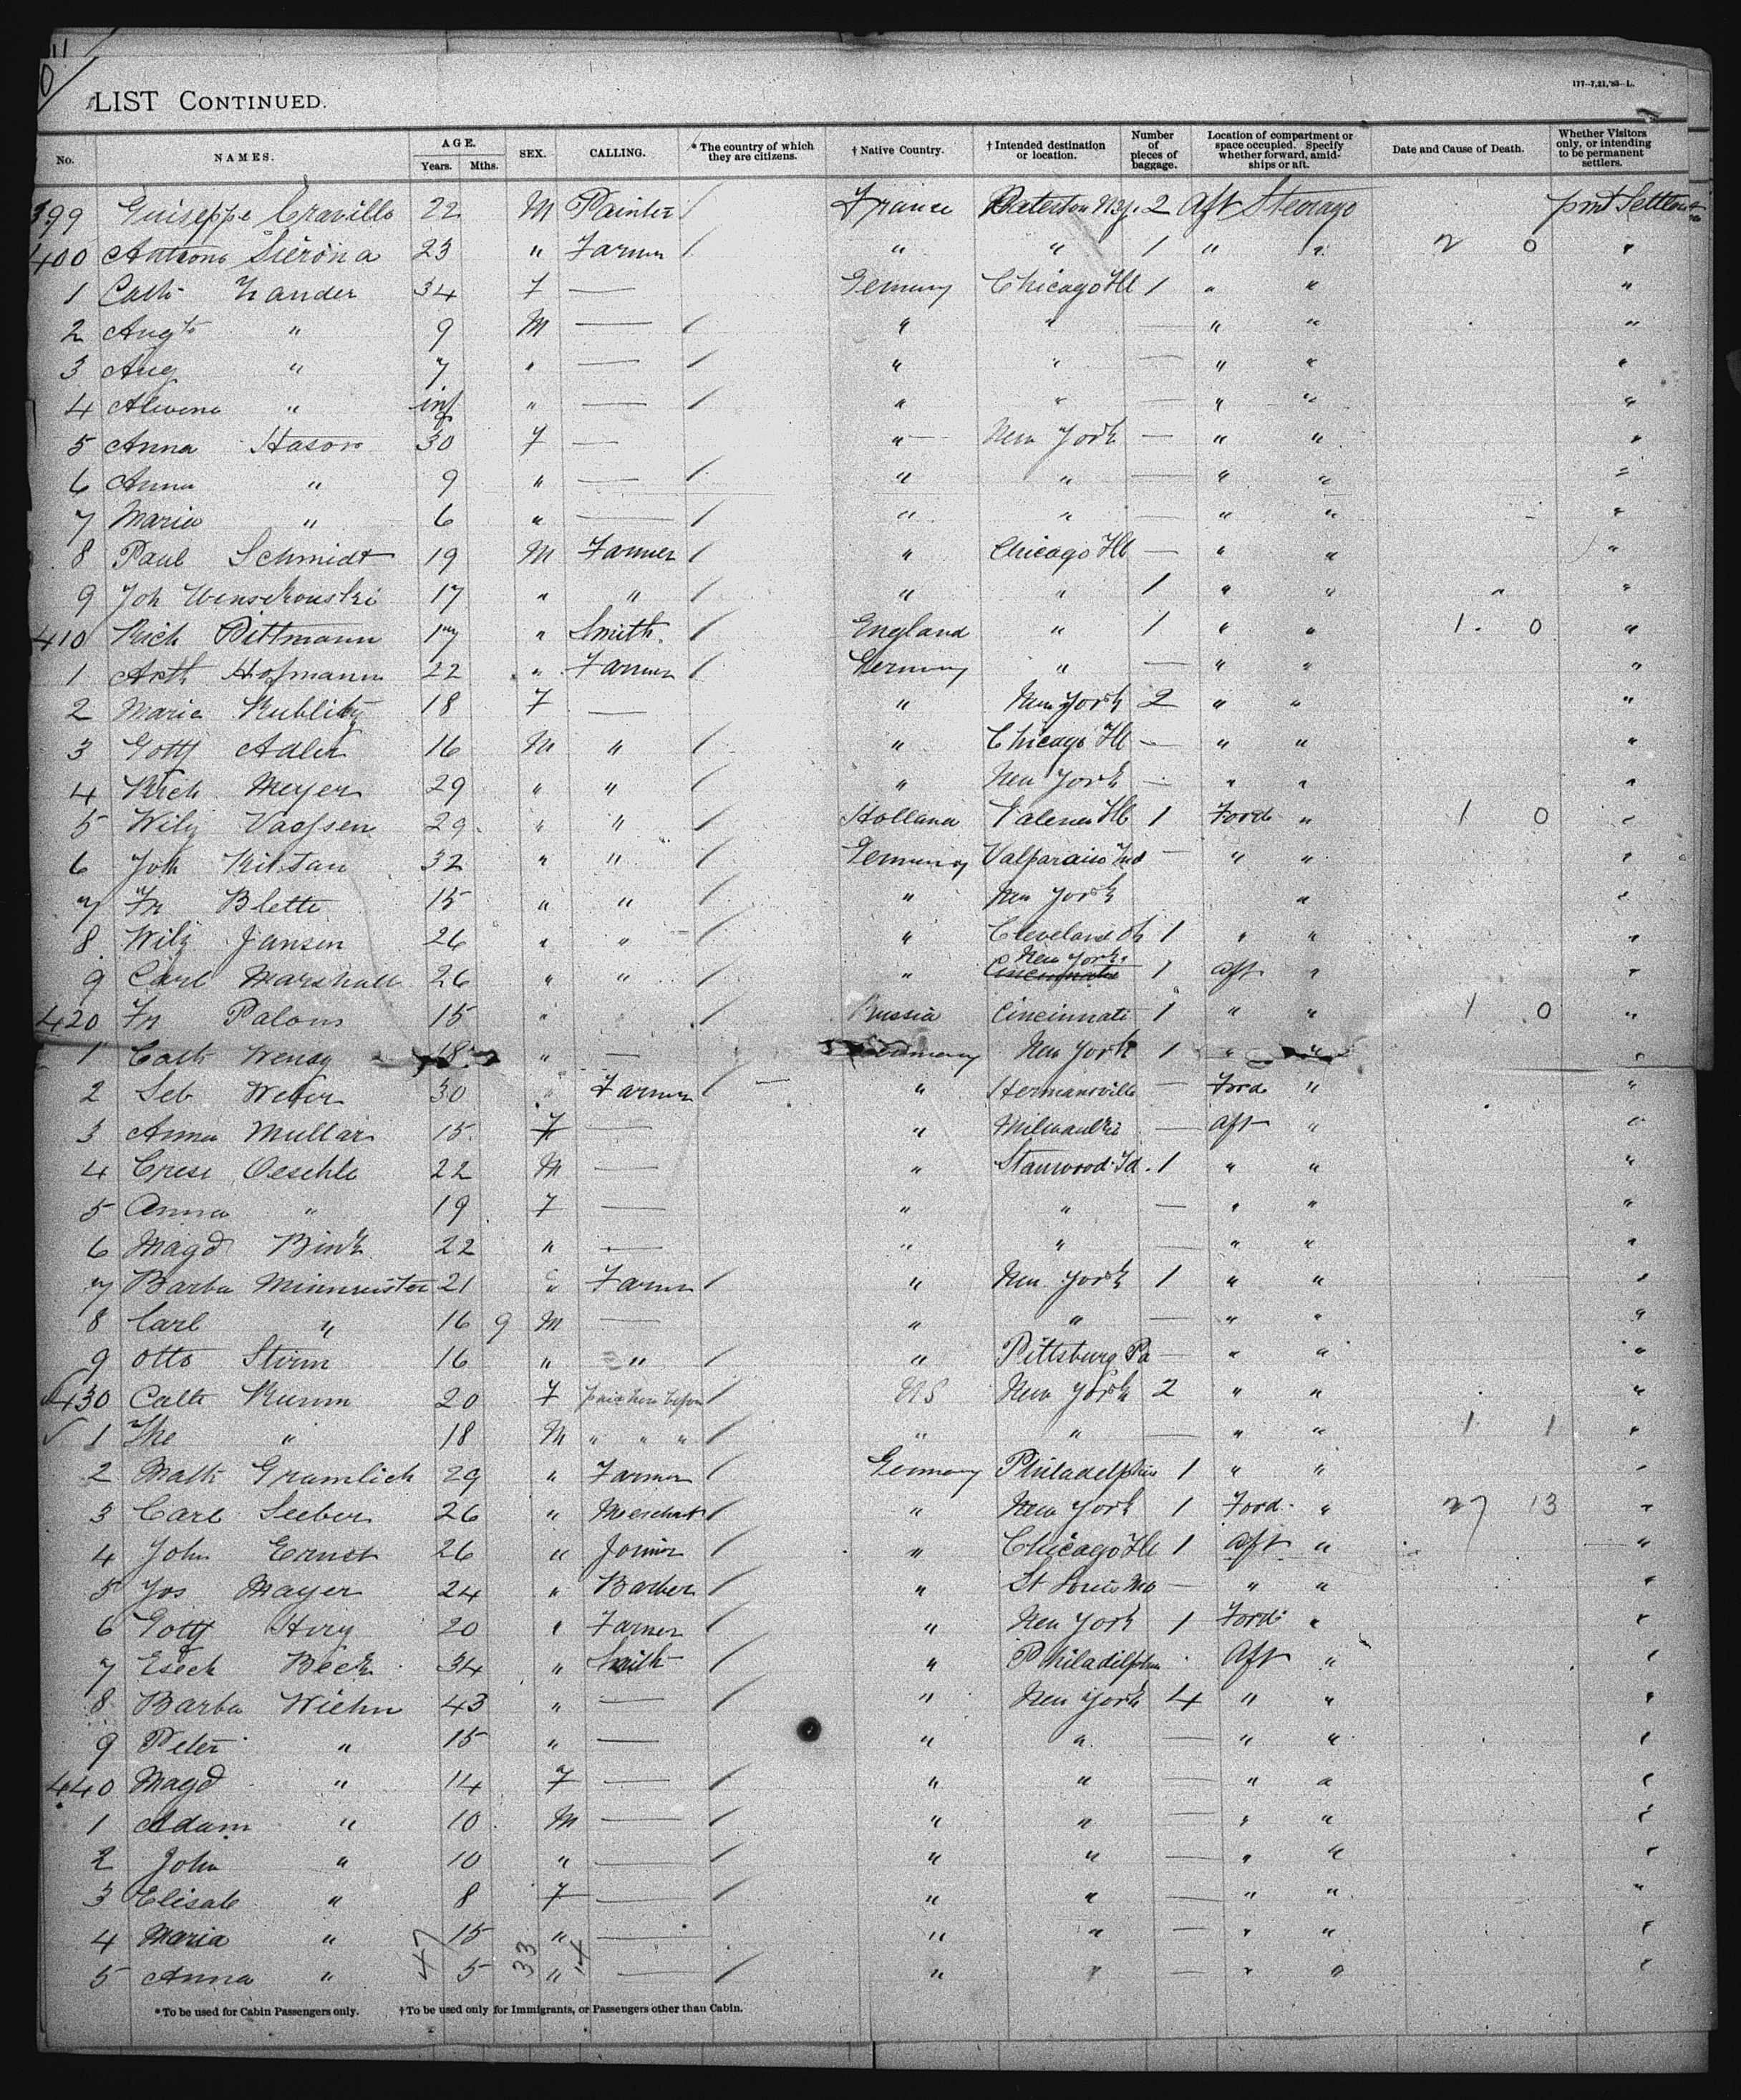 11
0
LIST CONTINUED.
177—7,21,'83—L.
No. NAMES. AGE. Years. Mths. SEX. CALLING. * The country of which they are citizens. † Native Country. † Intended destination or location. Number of pieces of baggage. Location of compartment or space occupied. Specify whether forward, amidships or aft. Date and Cause of Death. Whether Visitors only, or intending to be permanent settlers.
399 Guiseppe Cravillo 22 M Painter / France Paterson N.J. 2 Aft Steerage pmt Settlers
400 Antonio Sierona 23 " Farmer / " " 1 " " 2 0 "
1 Cath Zander 34 F — Germany Chicago Ill 1 " " "
2 Augte " 9 M — / " " — " " "
3 Aug " 7 " — / " " — " " "
4 Alwine " inf " — / " " — " " "
5 Anna Hason 30 F — " New York — " " "
6 Anna " 9 " — / " " — " " "
7 Maria " 6 " — / " " — " " "
8 Paul Schmidt 19 M Farmer / " Chicago Ill — " " "
9 Joh 17 " " / " " 1 " " "
410 Rich Dittmann 17 " Smith / England " 1 " " 1 0 "
1 Arth Hofmann 22 " Farmer / Germany " — " " "
2 Marie 18 F — " New York 2 " " "
3 Gottf Adler 16 M " / " Chicago Ill — " " "
4 Rich Meyer 29 " " / " New York — " " "
5 Wilh 29 " " / Holland Ill 1 Ford " 1 0 "
6 Joh Kristan 32 " " / Germany Valparaiso Ind — " " "
7 Fr Blette 15 " " / " New York " "
8 Wilh Jansen 26 " " / " Cleveland Oh 1 " " "
9 Carl Marshall 26 " " / " New York Cincinnati 1 Aft " "
420 Fr Palons 15 " / Russia Cincinnati 1 " " 1 0 "
1 Cath 18 " — Germany New York 1 " " "
2 Seb Weber 30 " Farmer / — " Hermansville — Ford " "
3 Anna Mullar 15 F — " Milwaukee — Aft " "
4 Cresc Oeschle 22 M — " Stanwood 1 " " "
5 Anna " 19 F — " " — " " "
6 Magd Bink 22 " — " " — " " "
7 Barba 21 " Farmer / " New York 1 " " "
8 Carl " 16 9 M — " " — " " "
9 Otto Stirm 16 " " / " Pittsburg Pa — " " "
430 Cath Kumm 20 F / US New York 2 " " "
1 " 18 M " " " / " " — " " 1 1 "
2 Math Gramlich 29 " Farmer / Germany Philadelphia 1 " " "
3 Carl Seeber 26 " Merchant / " New York 1 Ford " 27 13 "
4 John Ernst 26 " Joiner / " Chicago Ill 1 Aft " "
5 Jos Mayer 24 " Barber / " St Louis Mo — " " "
6 Gottf 20 " Farmer / " New York 1 Ford " "
7 Beck 34 " Smith / " Philadelphia Aft " "
8 Barba Wiehn 43 " — / " New York 4 " " "
9 Peter " 15 " — " " — " " "
440 Magd " 14 F — / " " — " " "
1 Adam " 10 M — / " " — " " "
2 John " 10 " — / " " — " " "
3 Elisab " 8 F — / " " — " " "
4 Maria " 15 " — " " — " " "
5 Anna " 5 " — / " " — " " "
47 33 14
* To be used for Cabin Passengers only. † To be used only for Immigrants, or Passengers other than Cabin.